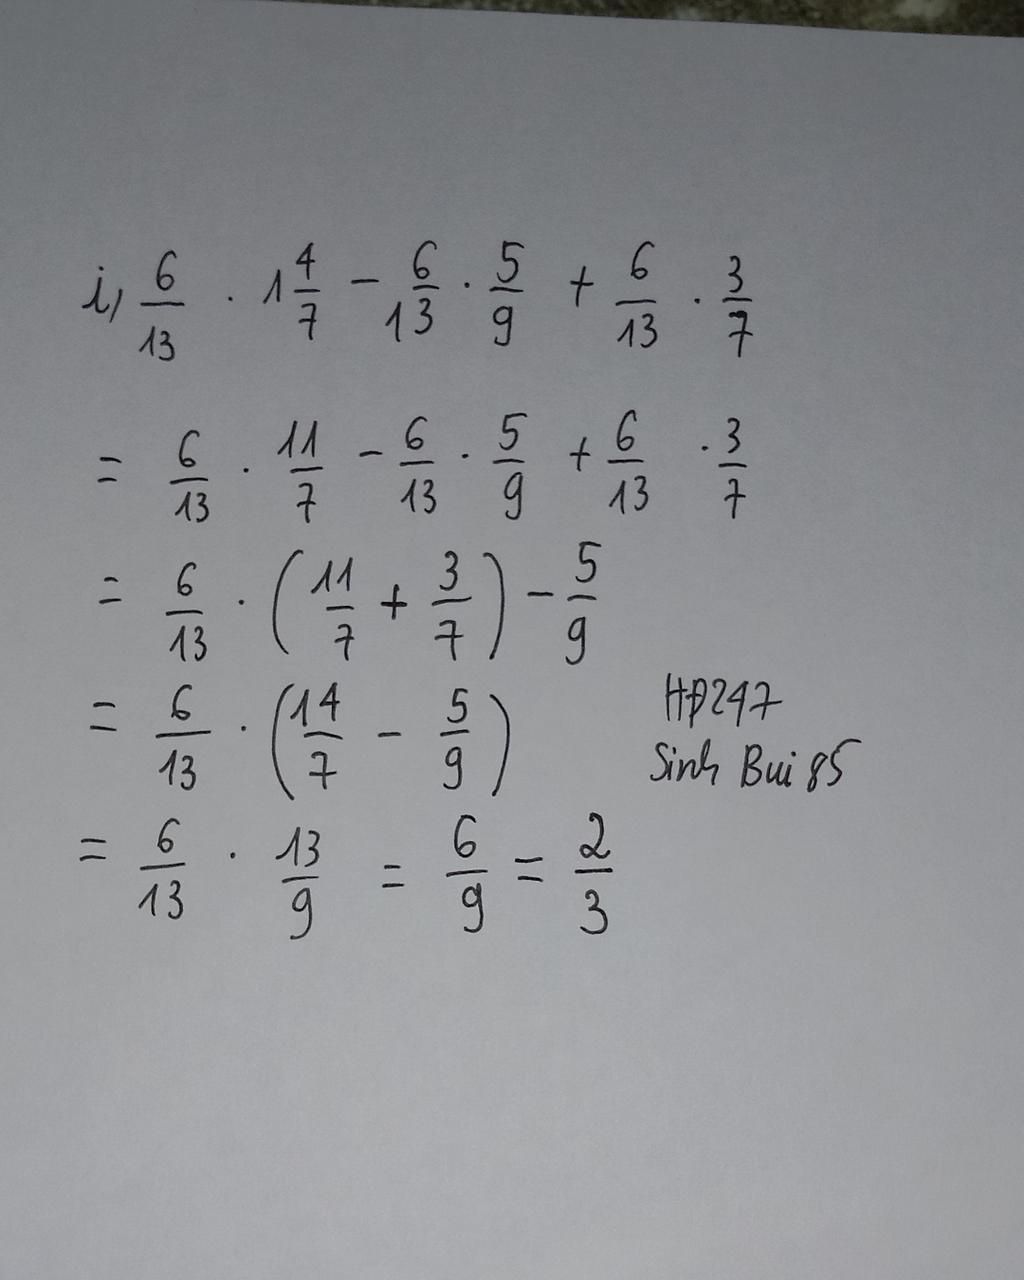 i, 6/13 . 1 4/7 - 6/13 . 5/9 + 6/13 . 3/7
= 6/13 . 11/7 - 6/13 . 5/9 + 6/13 . 3/7
= 6/13 . (11/7 + 3/7) - 5/9
= 6/13 . (14/7 - 5/9)
HĐ247
Sinh Bui 85
= 6/13 . 13/9 = 6/9 = 2/3